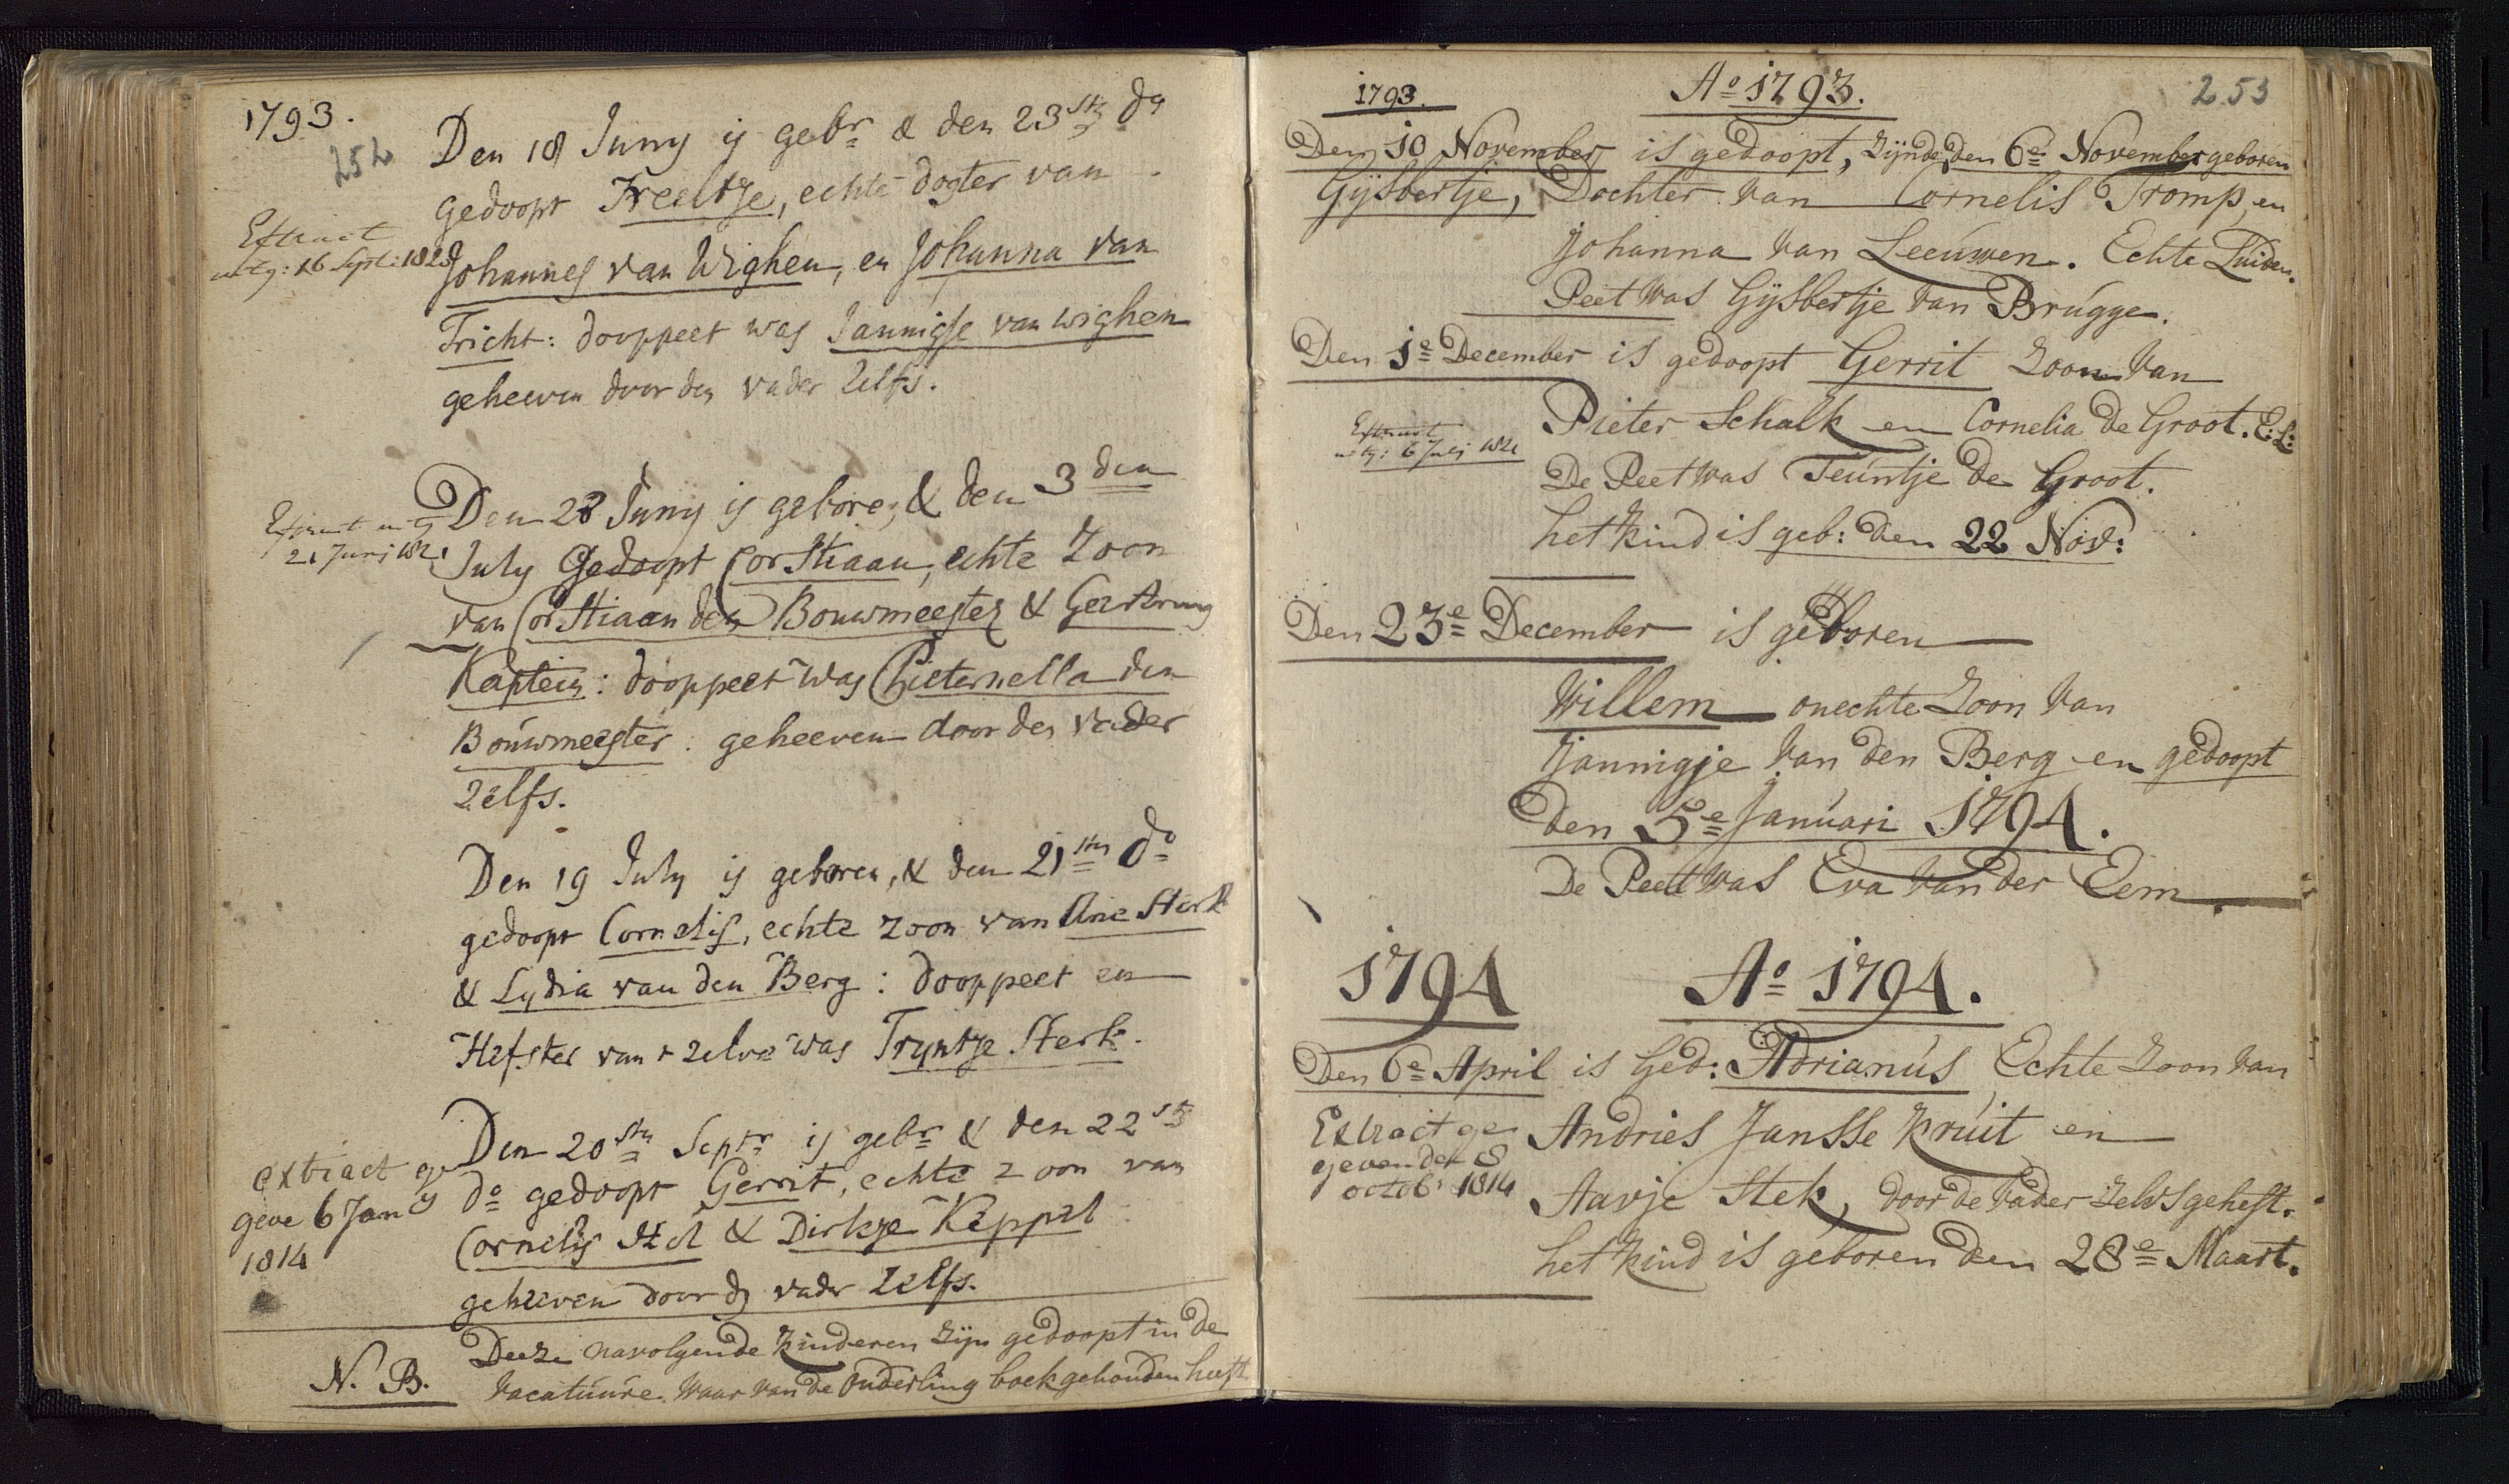 1793.
252
Den 18 Juny is gebr & den 23ste do
gedoopt Treeltje, echte dogter van
Extract
uitg: 16 Sept: 1823
Johannes van Wighen, en Johanna van
Tricht: dooppeet was Jannigje van wighen
geheeven door den vader zelfs.
Den 28 Juny is gebore, & den 3den
Extract uitg
21 Junj 1821
July Gedoopt Corstiaan, echte Zoon
van Corstiaan den Bouwmeester &
Kaptein: dooppeet was Pieternella den
Bouwmeester: geheeven door den vader
zelfs.
Den 19 July is geboren, & den 21sten do
gedoopt Cornelis, echte zoon van Arie Sterk
& Lydia van den Berg: dooppeet en
Hefster van t zelve was Tryntje Sterk.
Den 20sten Septr is gebr & den 22ste
extract ge
geve 6 Jany
1814
do gedoopt Gerrit, echte zoon van
Cornelis & Dirkje Keppel
geheeven door den vader zelfs.
N. B.
Deeze navolgende kinderen zijn gedoopt in de
vacatuure. waar van de ouderling boek gehouden heeft
1793.
Ao 1793.
253
Den 10 November is gedoopt, zijnde den 6e November geboren
Gijsbertje, Dochter van Cornelis Tromp en
Johanna van Leeuwen. Echte Luiden.
Peet was Gijsbertje van Brugge.
Den 1e December is gedoopt Gerrit Zoon van
Extract
uitg: 6 Julj 1821
Pieter Schalk en Cornelia de Groot. E: L:
De Peet was Teuntje de Groot.
het kind is geb: den 22 Nov:
Den 23e December is geboren
Willem onechte Zoon van
Jannigje van den Berg en gedoopt
den 5e Januari 1794.
De Peet was Eva van der Eem.
1794
Ao 1794.
Den 6e April is Ged: Adrianus Echte Zoon van
Extract ge
geven den 8
octob: 1814
Andries Jansse Kruit en
Aavje Stek, door de vader zelvs geheft.
het kind is geboren den 28e Maart.